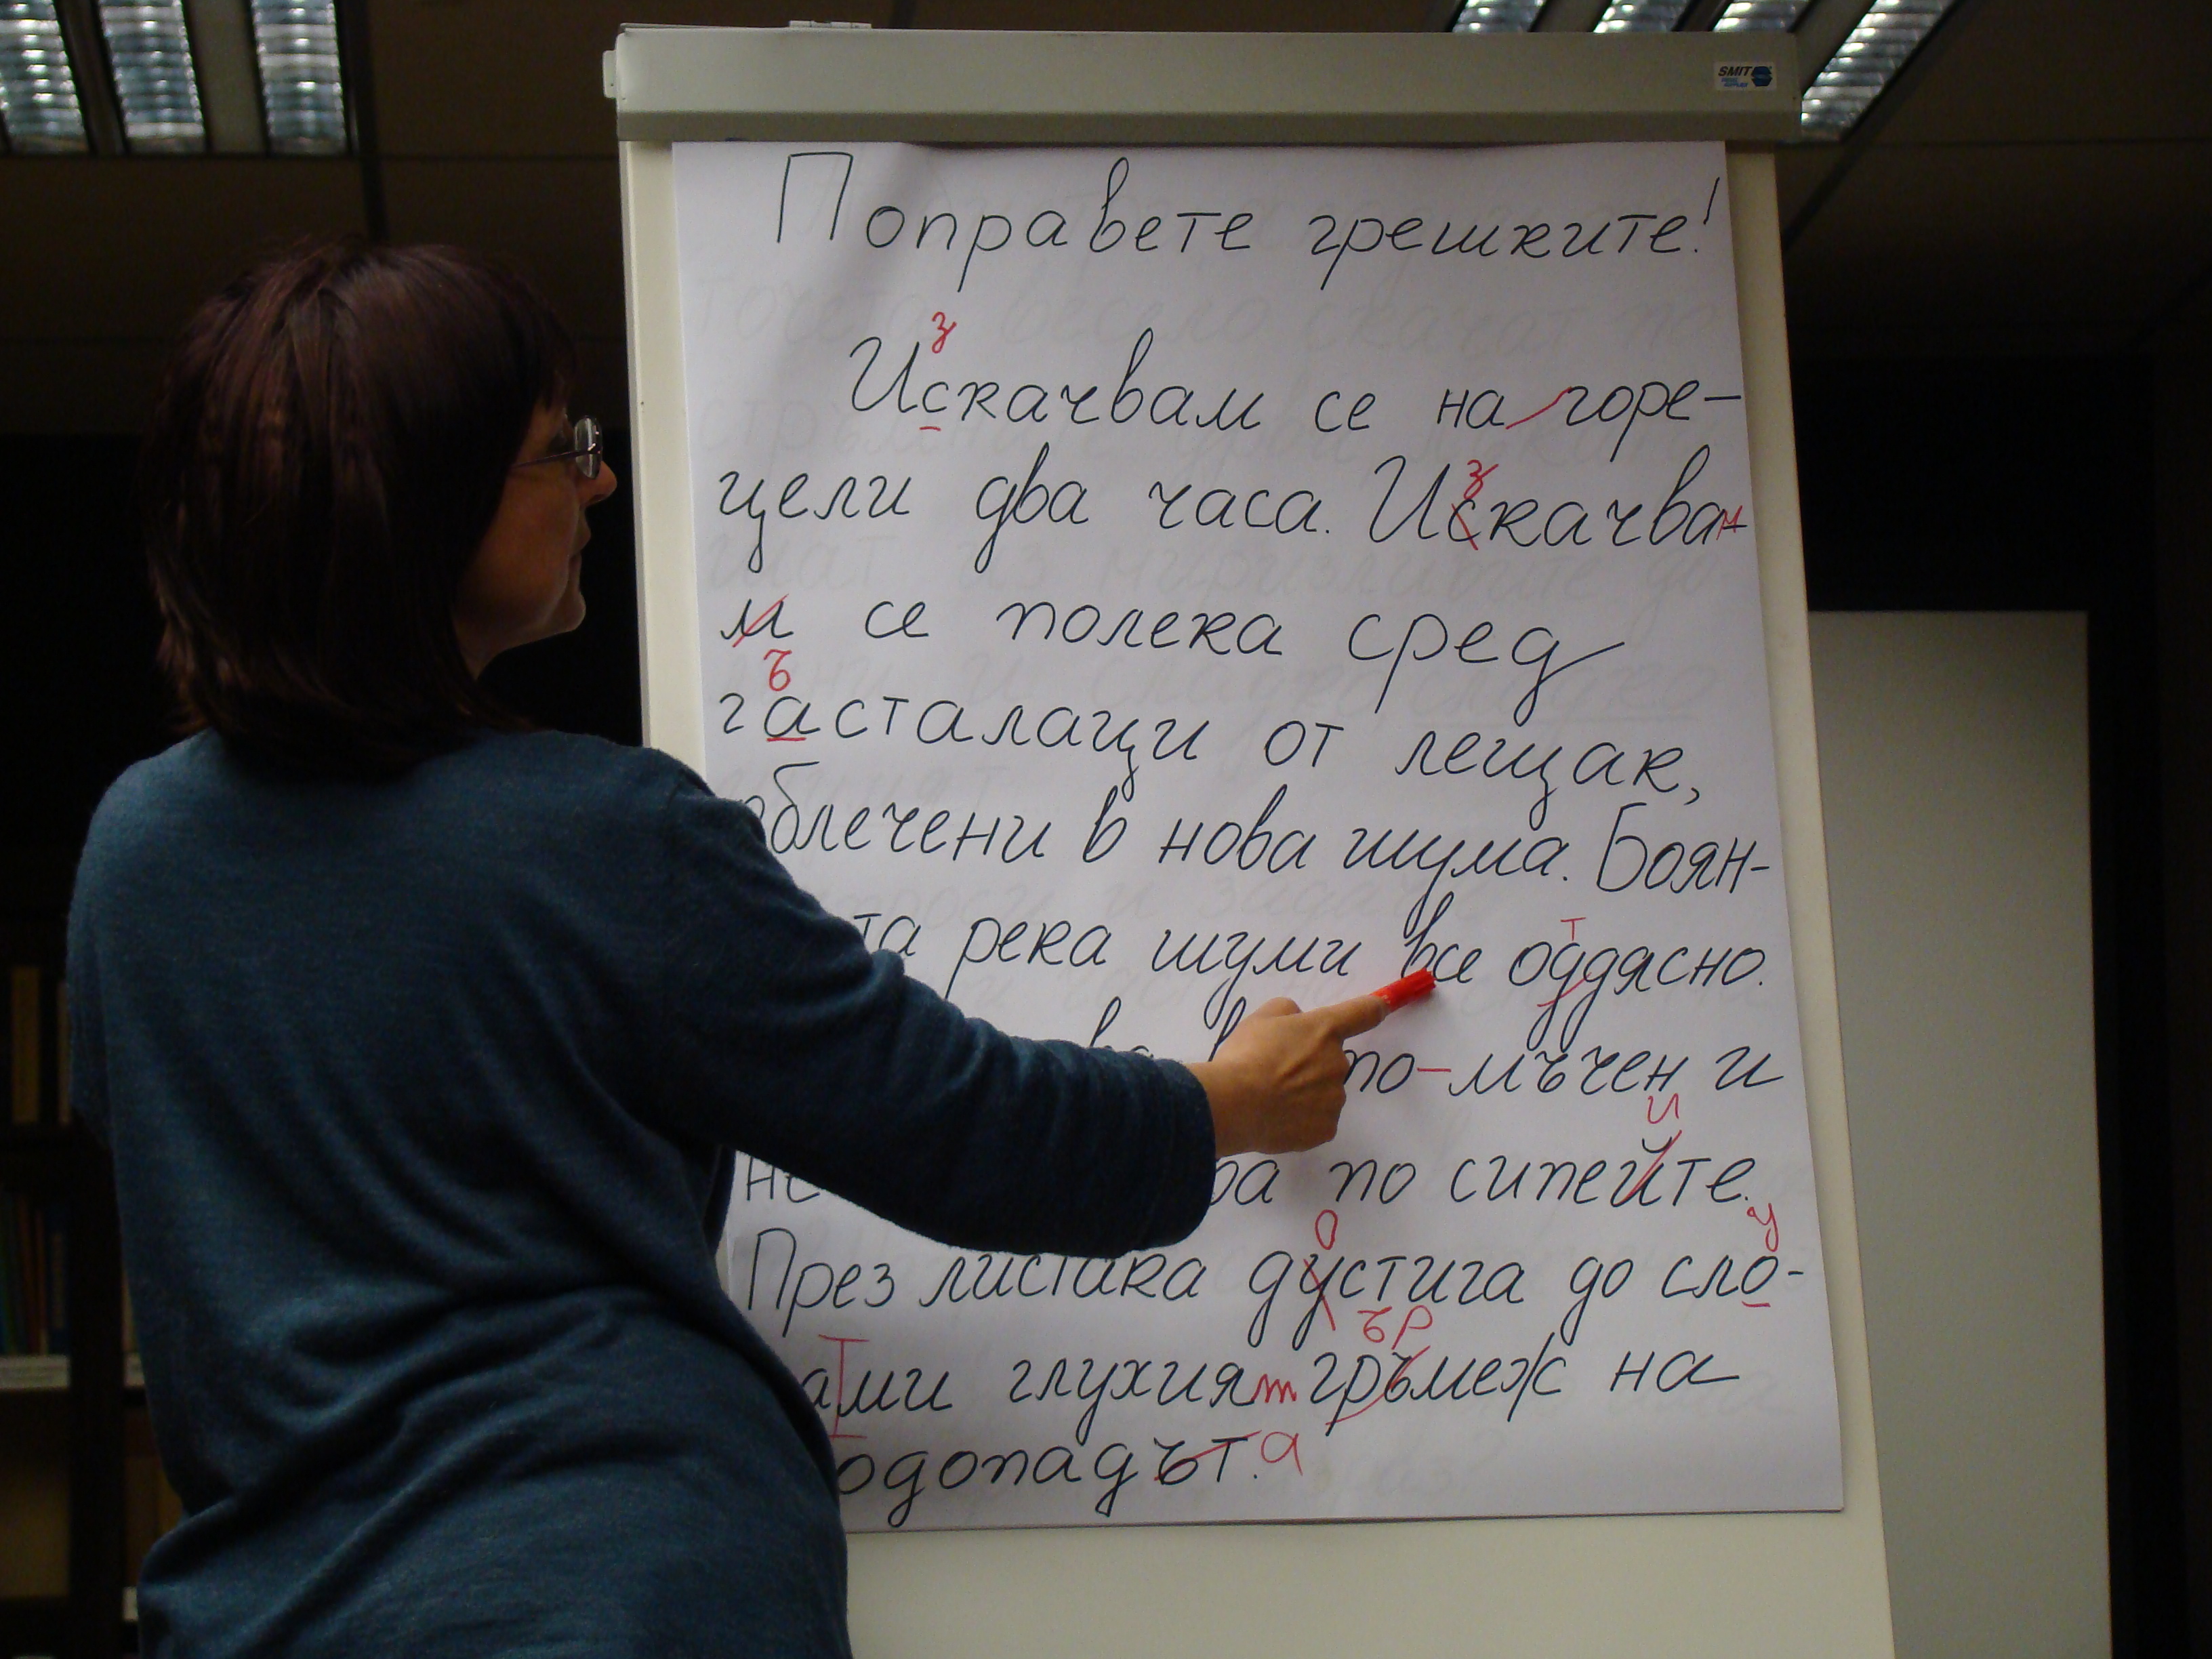 SMIT
Поправете грешките!
з
Искачвам се на горе-
цели два часа. Искачва-
з н
м се полека сред
ъ
гасталаци от лещак,
облечени в нова шума. Боян-
та река шуми все оддясно.
т
по-мъчен и
и
по сипейте.
у
През листака дустига до сло-
о
ми глухият гръмеж на
ър
водопадът. а